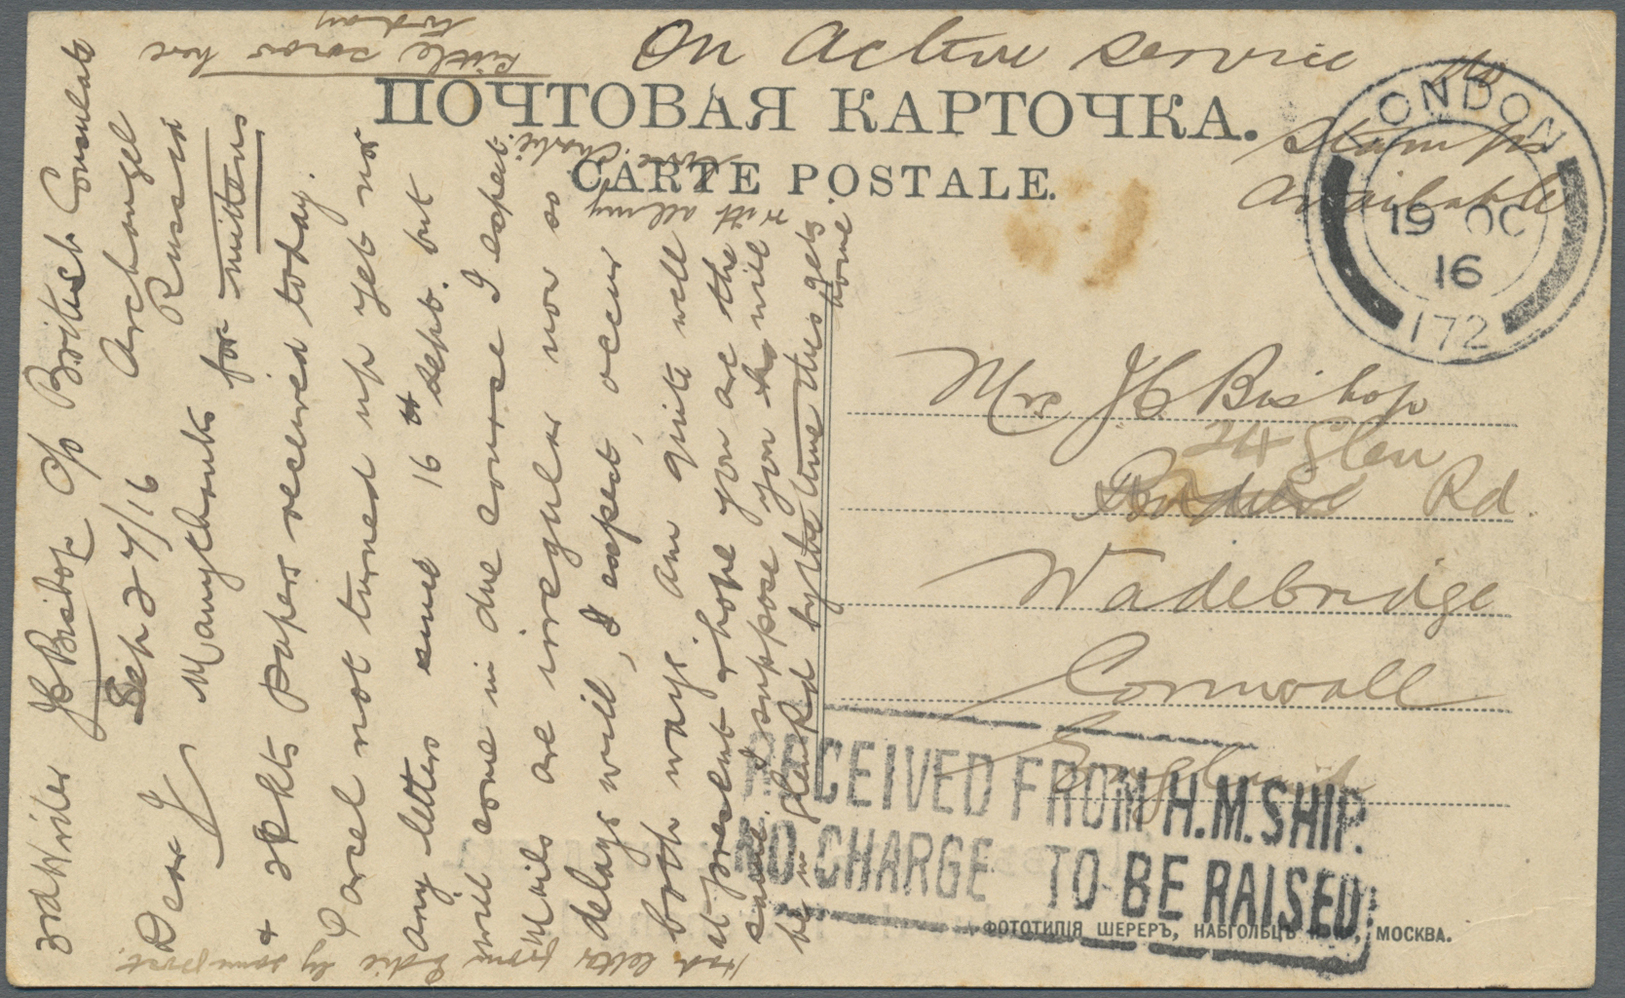 On Active Service
No
Stamps
Available
ПОЧТОВАЯ КАРТОЧКА.
CARTE POSTALE.
LONDON
19 OC
16
172
Mrs J C Bishop
24 Glen
Rd
Wadebridge
Cornwall
England
RECEIVED FROM H.M.SHIP.
NO CHARGE TO BE RAISED.
ФОТОТИПІЯ ШЕРЕРЪ, НАБГОЛЬЦЪ МОСКВА.
3rd Writer J C Bishop c/o British Consulate
Sep 27/16 Archangel
Russia
Dear J Many thanks for mittens
+ 2 pkts papers received today.
Parcel not turned up yet nor
any letters since 16th Sept. but
will come in due course I expect.
Mails are irregular now so
delays will, I expect, occur
both ways. Am quite well
at present & hope you are the
same. I suppose you will
be in Glen Rd by the time this gets
home.
With all my
love. Charlie.
Had letter from Edie by same post.
Little snow here
today